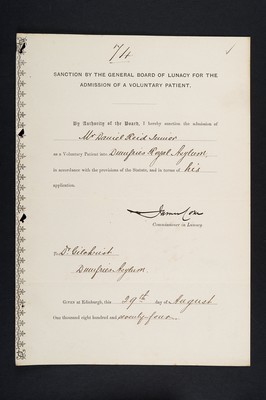 74
SANCTION BY THE GENERAL BOARD OF LUNACY FOR THE
ADMISSION OF A VOLUNTARY PATIENT.
By Authority of the Board, I hereby sanction the admission of
Mr Daniel Reid Junior
as a Voluntary Patient into Dumfries Royal Asylum,
in accordance with the provisions of the Statute, and in terms of his
application.
Commissioner in Lunacy
To Dr. Gilchrist
Dumfries Asylum
Given at Edinburgh, this 29th day of August
One thousand eight hundred and seventy four